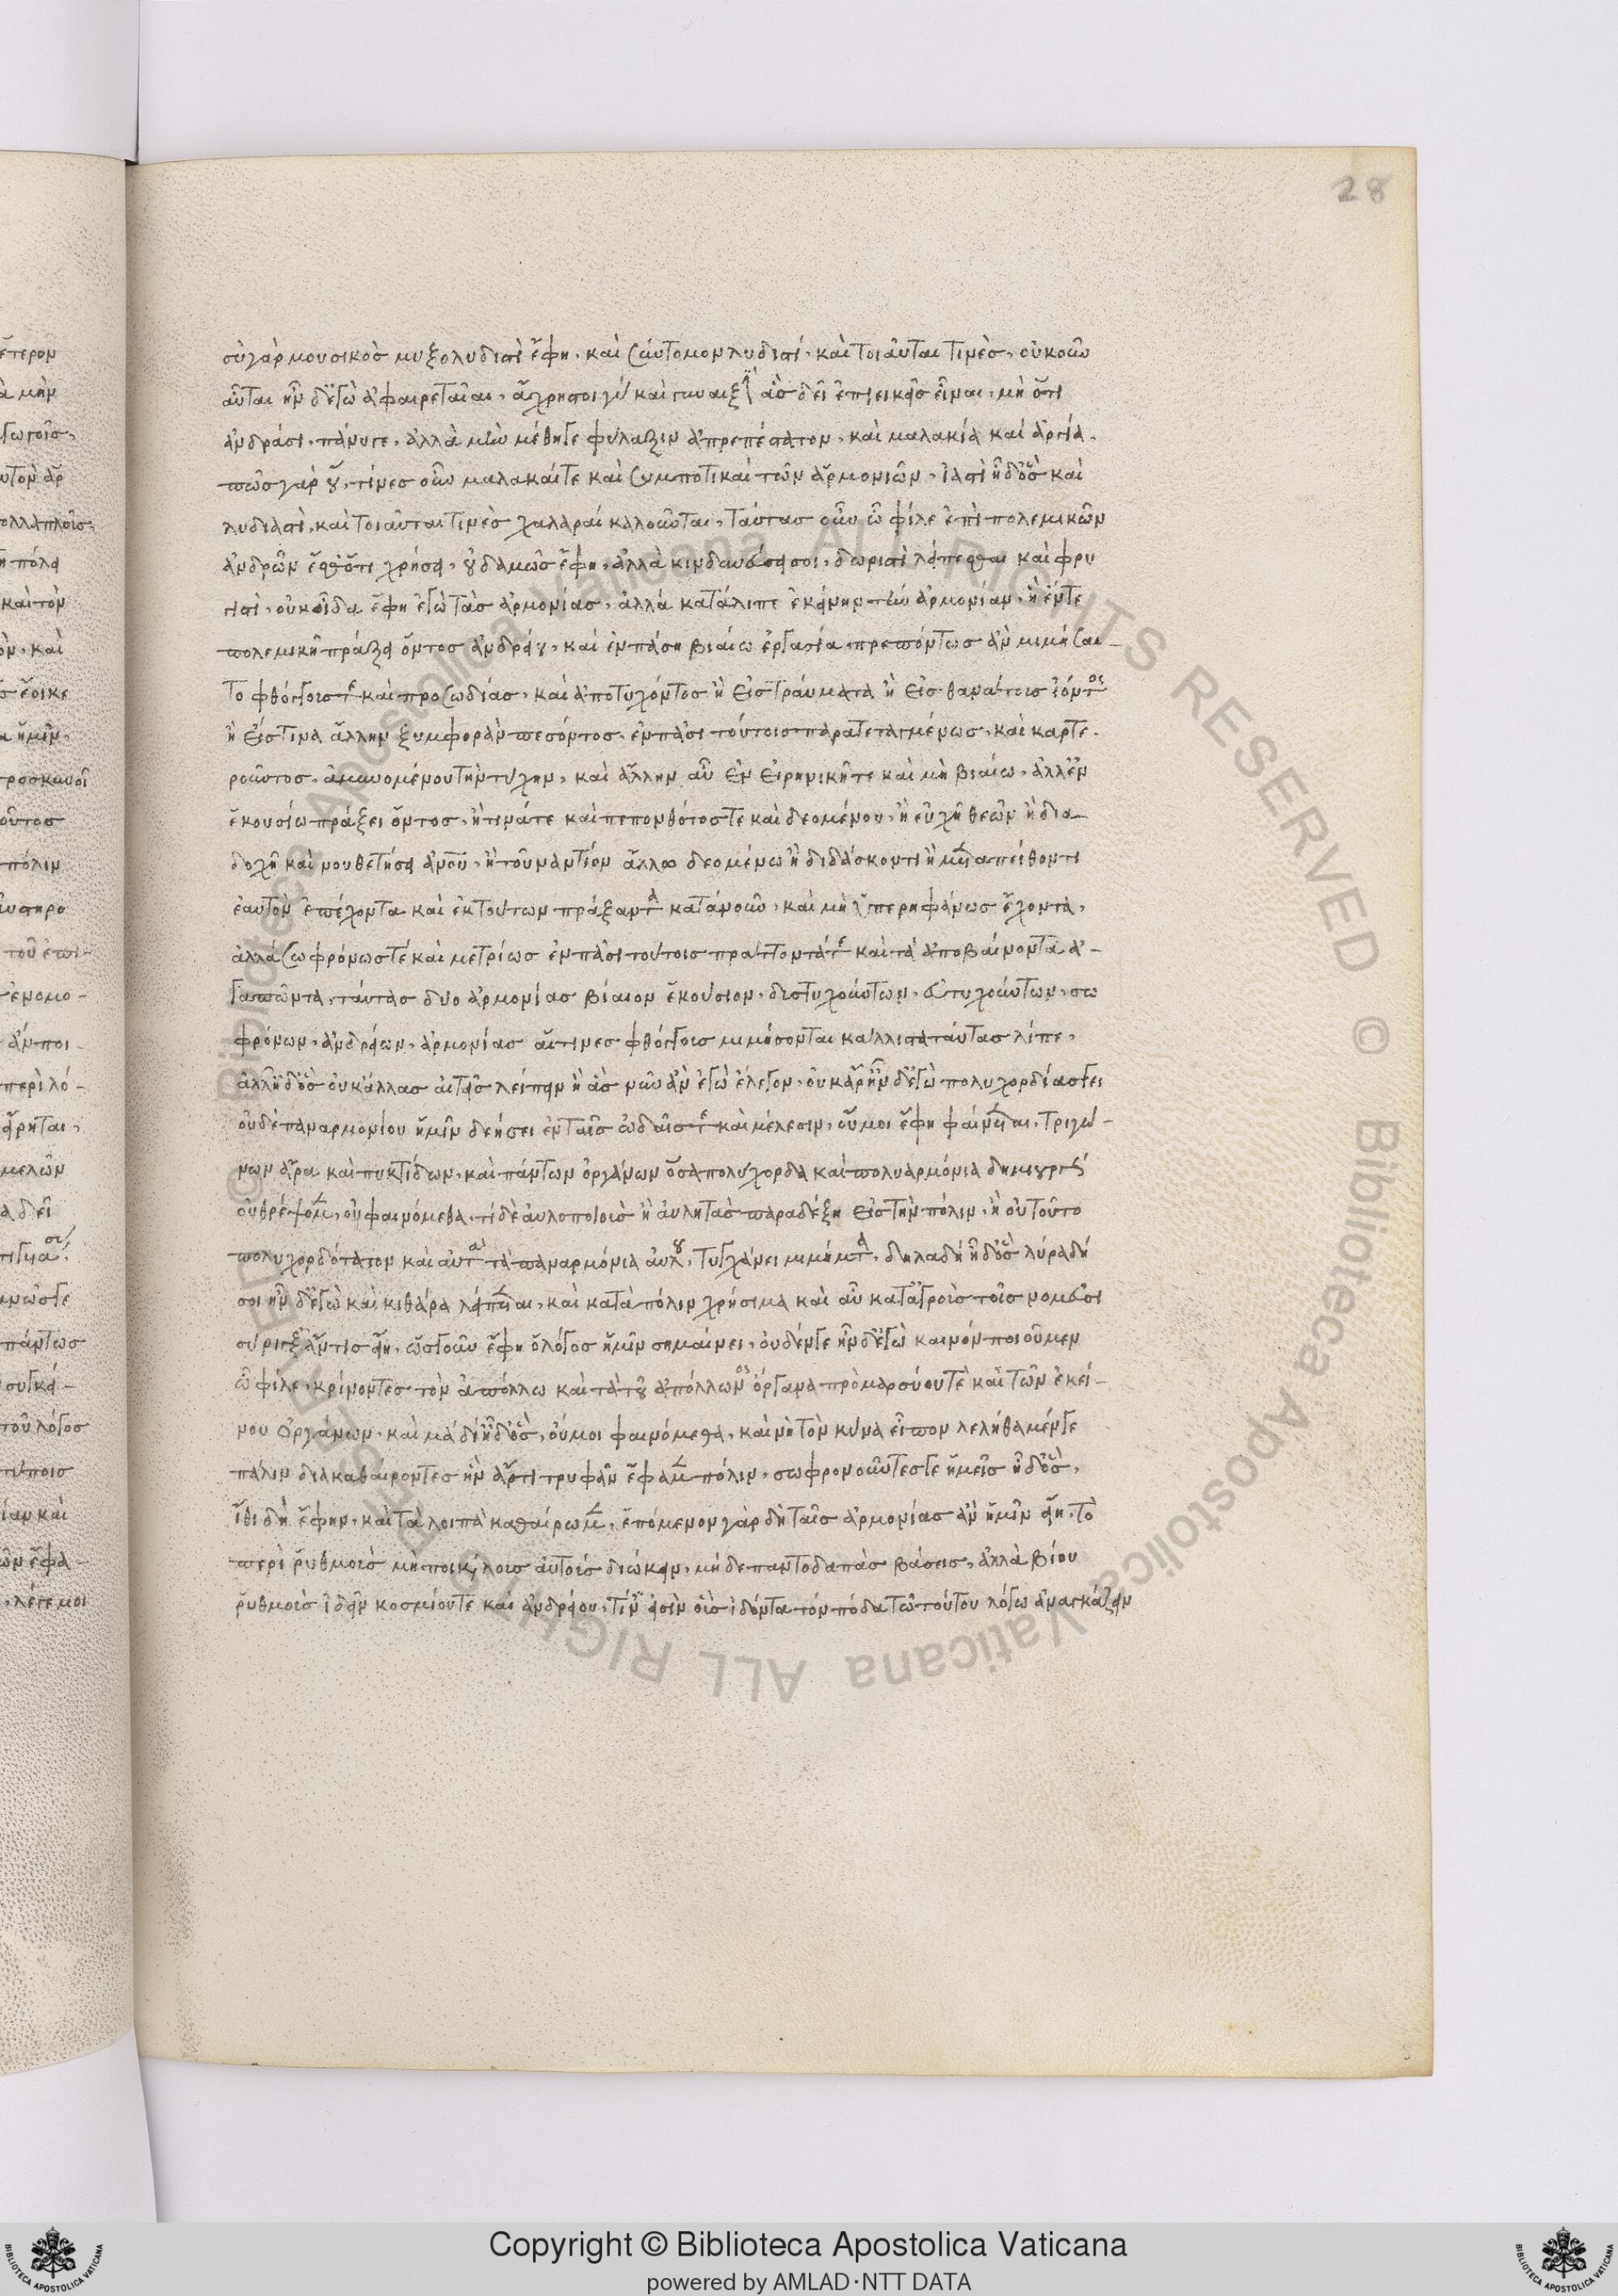 28
σὺ γὰρ μουσικὸσ μυξολυδιστὶ ἔφη, καὶ συντονολυδιστί, καὶ τοιαῦται τινὲσ, οὐκοῦν
αὗται ἦν δ' ἐγὼ ἀφαιρεταῖαι, ἄχρηστοι γὰρ καὶ γυναιξὶν ἃσ δεῖ ἐπιεικεῖσ εἶναι, μὴ ὅτι
ἀνδράσι, πάνυ γε, ἀλλὰ μὴν μέθη γε φύλαξιν ἀπρεπέστατον, καὶ μαλακία καὶ ἀργία,
πῶσ γὰρ οὔ, τίνεσ οὖν μαλακαί τε καὶ συμποτικαὶ τῶν ἁρμονιῶν, ἰαστὶ ἦ δ' ὃσ καὶ
λυδιαστὶ, καὶ τοιαῦται τινὲσ χαλαραὶ καλοῦνται, ταύτασ οὖν ὦ φίλε ἐπὶ πολεμικῶν
ἀνδρῶν ἔσθ' ὅτι χρήσει, οὐδαμῶσ ἔφη, ἀλλὰ κινδυνεύει σοι, δωριστὶ λείπεσθαι καὶ φρυ
γιστὶ, οὐκ οἶδα ἔφη ἐγὼ τὰσ ἁρμονίασ, ἀλλὰ κατάλιπε ἐκείνην τὴν ἁρμονίαν, ἣ ἔν τε
πολεμικῆ πράξει ὄντοσ ἀνδρείου, καὶ ἐν πάση βιαίω ἐργασία πρεπόντωσ ἂν μιμήσαι-
το φθόγγουσ τε καὶ προσωδίασ, καὶ ἀποτυχόντοσ ἢ εἰσ τραύματα ἢ εἰσ θανάτουσ ἰόντος
ἢ εἴσ τινα ἄλλην ξυμφορὰν πεσόντοσ, ἐν πᾶσι τούτοισ παρατεταγμένωσ, καὶ καρτε-
ροῦντοσ, ἀμυνομένου τὴν τύχην, καὶ ἄλλην αὖ ἐν εἰρηνικῆ τε καὶ μὴ βιαίω, ἀλλ' ἐν
ἑκουσίω πράξει ὄντοσ, ἢ τινά τε καὶ πεπονθότοσ τε καὶ δεομένου, ἢ εὐχῆ θεῶν ἢ δια-
δοχῆ καὶ νουθετήσει ἀνοῦ, ἢ τοὐναντίον ἄλλω δεομένω ἢ διδάσκοντι ἢ μεταπείθοντι
ἑαυτὸν ἐπέχοντα καὶ ἐκ τούτων πράξαντα κατὰ νοῦν, καὶ μὴ ὑπερηφάνωσ ἔχοντα,
ἀλλὰ σωφρόνωσ τὲ καὶ μετρίωσ ἐν πᾶσι τούτοισ πράττοντά τε καὶ τὰ ἀποβαίνοντα ἀ-
γαπῶντα, ταύτασ δυο ἁρμονίασ βίαιον ἑκούσιον, δυστυχούντων, εὐτυχούντων, σω
φρόνων, ἀνδρείων, ἁρμονίασ αἵτινεσ φθόγγουσ μιμήσονται κάλλιστα ταύτασ λίπε,
ἀλλ' ἦ δ' ὃσ οὐκ ἄλλασ αἰτεῖσ λείπειν ἢ ἃσ νῦν ἂν ἐγὼ ἔλεγον, οὐκ ἄρ' ἦν δ' ἐγὼ πολυχορδίασ γε
οὐδὲ παναρμονίου ἡμῖν δεήσει ἐν ταῖσ ὠδαῖσ τε καὶ μέλεσιν, οὔ μοι ἔφη φαίνεται, τριγώ-
νων ἄρα καὶ πυκτίδων, καὶ πάντων ὀργάνων ὅσα πολύχορδα καὶ πολυαρμόνια δημιουργοὺσ
οὐ θρέψομεν, οὐ φαινόμεθα, τί δὲ αὐλοποιοὺσ ἢ αὐλητὰσ παραδέξη εἰσ τὴν πόλιν, ἢ οὐ τοῦτο
πολυχορδότατον καὶ αὐτὰ τὰ παναρμόνια αὐλοῦ, τυγχάνει μιμήματα, δηλαδὴ ἦ δ' ὃσ λύρα δή
σοι ἦν δ' ἐγὼ καὶ κιθάρα λείπεται, καὶ κατὰ πόλιν χρήσιμα καὶ αὖ κατ' ἀγροὺσ τοῖσ νομεῦσι
σύριγξ ἄν τισ εἴη, ὡσ γοῦν ἔφη ὁ λόγοσ ἡμῖν σημαίνει, οὐδέν γε ἦν δ' ἐγὼ καινὸν ποιοῦμεν
ὦ φίλε, κρίνοντεσ τὸν ἀπόλλω καὶ τὰ τοῦ ἀπόλλωνος ὄργανα πρὸ μαρσύου τὲ καὶ τῶν ἐκεί-
νου ὀργάνων, καὶ μὰ δί' ἦ δ' ὃσ, οὔ μοι φαινόμεθα, καὶ νὴ τὸν κύνα εἶπον λελήθαμέν γε
πάλιν διακαθαίροντεσ ἣν ἄρτι τρυφᾶν ἔφαμεν πόλιν, σωφρονοῦντεσ γε ἡμεῖσ ἦ δ' ὃσ,
ἴθι δὴ ἔφην, καὶ τὰ λοιπὰ καθαίρωμεν, ἑπόμενον γὰρ δὴ ταῖσ ἁρμονίαισ ἂν ἡμῖν εἴη, τὸ
περὶ ῥυθμοὺσ μὴ ποικίλουσ αὐτοὺσ διώκειν, μηδὲ παντοδαπὰσ βάσεισ, ἀλλὰ βίου
ῥυθμοὺσ ἰδεῖν κοσμίου τε καὶ ἀνδρείου, τίνεσ εἰσὶν οὓσ ἰδόντα τὸν πόδα τῶ τούτου λόγω ἀναγκάζειν
Copyright © Biblioteca Apostolica Vaticana
powered by AMLAD·NTT DATA